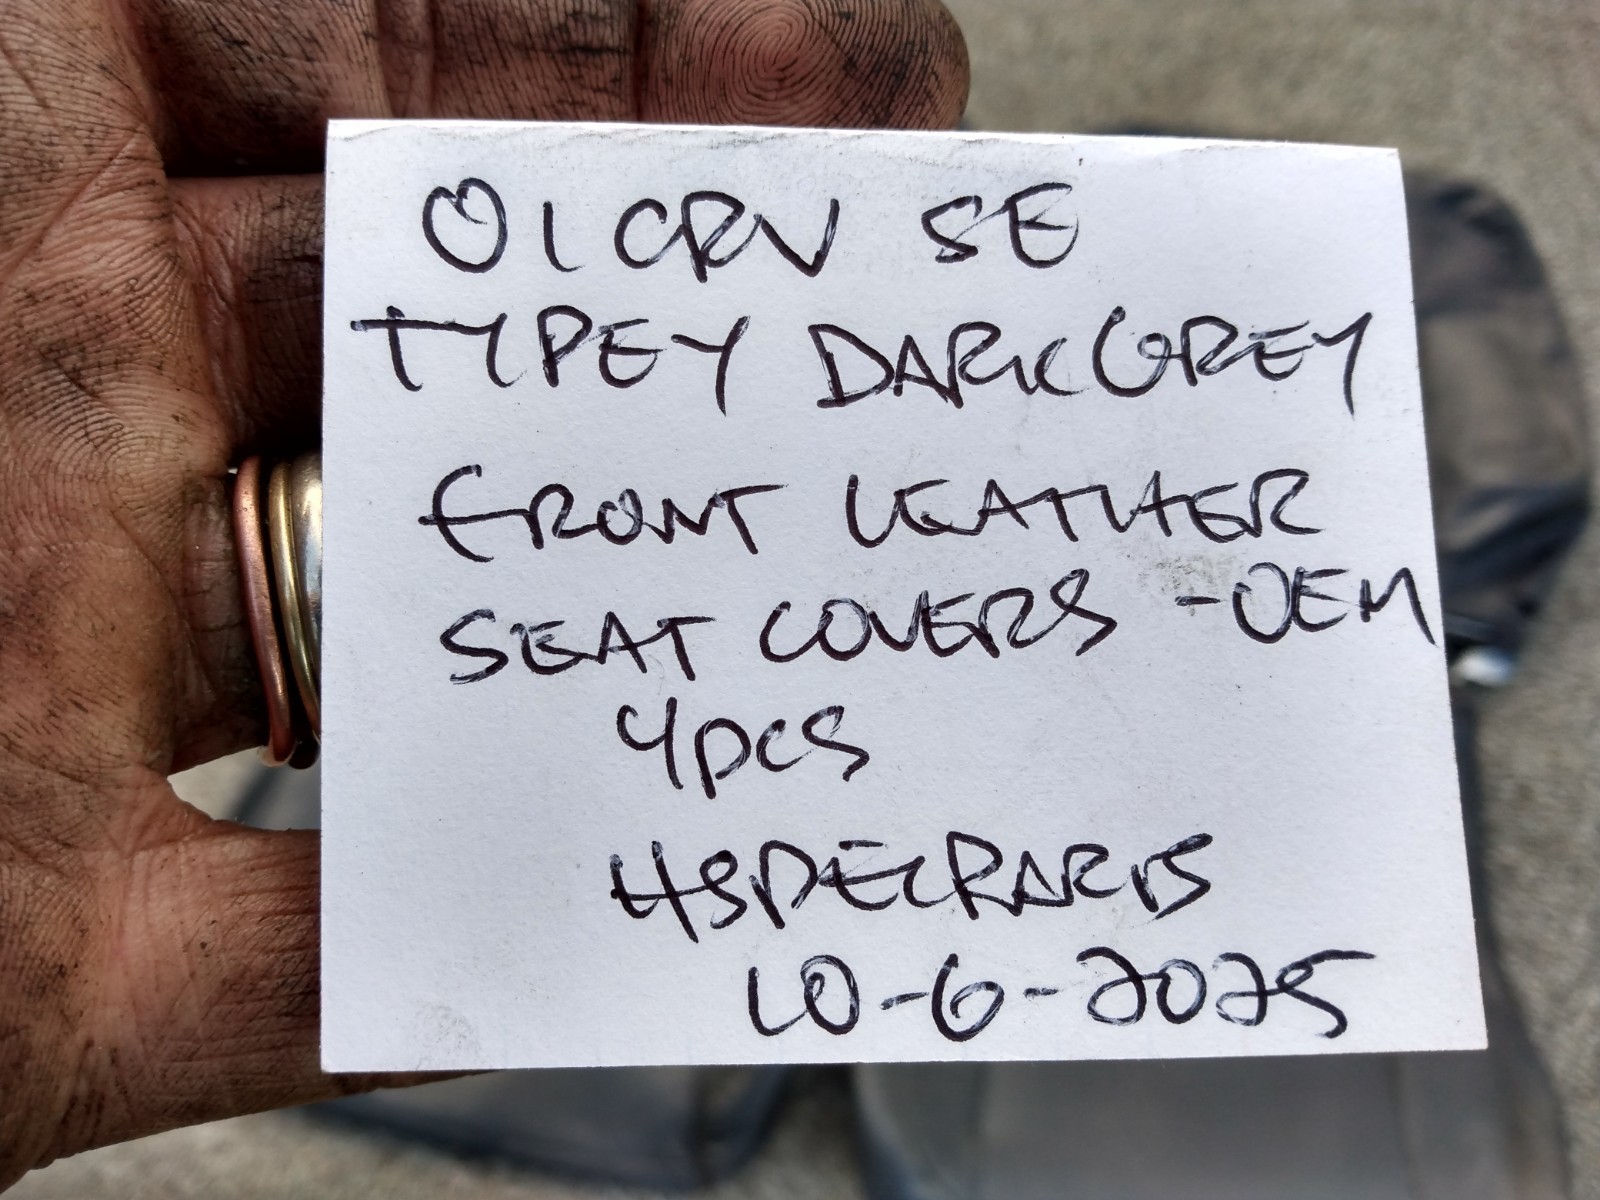 01 CRV SE
TYPE Y DARK GREY
FRONT LEATHER
SEAT COVERS - OEM
4PCS
HSPECPARTS
10-6-2025